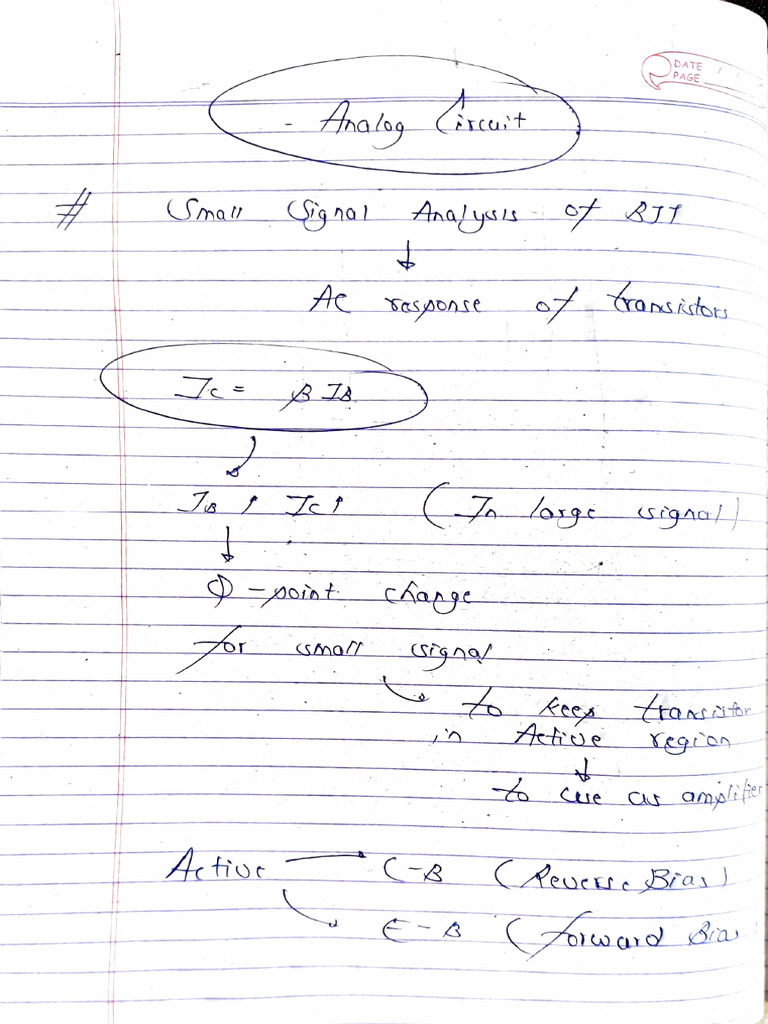 DATE
PAGE
- Analog Circuit
# Small Signal Analysis of BJT
↓
AC response of transistors
IC = β IB
IB ↑ IC ↑ (In large signal)
↓
Q-point change
for small signal
to keep transistor
in Active region
↓
to use as amplifier
Active → C-B (Reverse Bias)
E-B (forward Bias